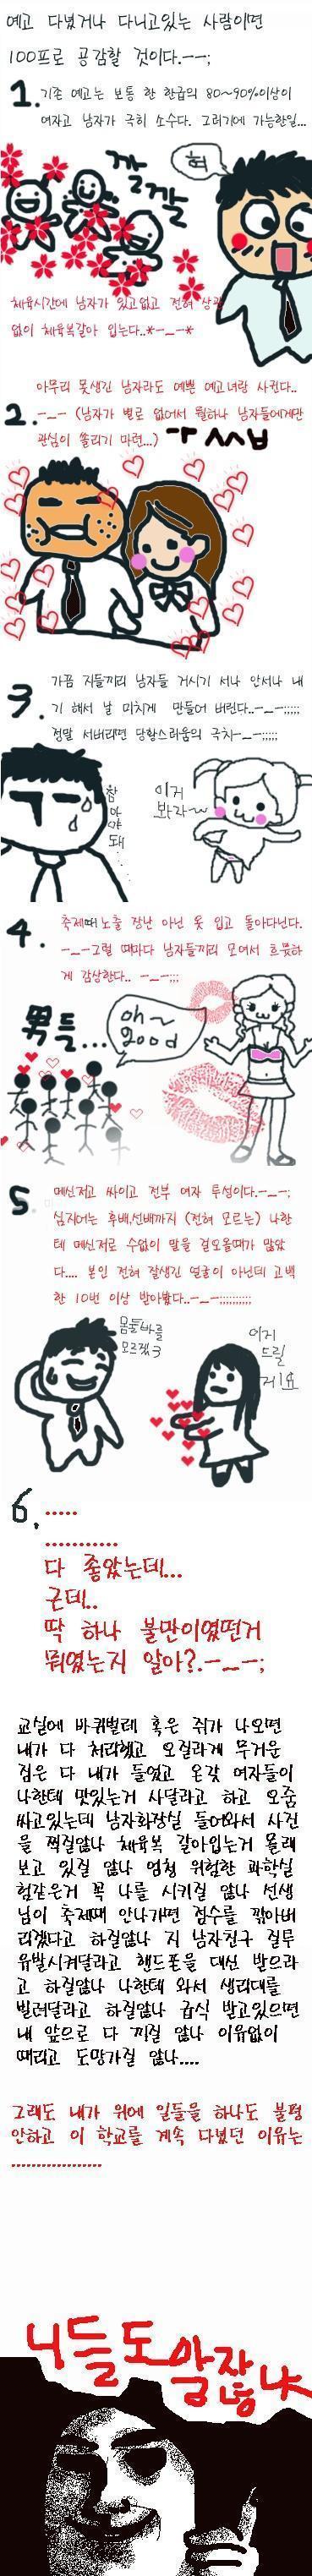 예고 다녔거나 다니고있는 사람이면
100프로 공감할 것이다.ㅡㅡ;
1. 기존 예고는 보통 한 학급의 80~90%이상이
여자고 남자가 극히 소수다. 그러기에 가능한일...
깔깔
헉
체육시간에 남자가 있고없고 전혀 상관
없이 체육복갈아 입는다..*ㅡ_ㅡ*
아무리 못생긴 남자라도 예쁜 예고녀랑 사귄다..
2. ㅡ_ㅡ (남자가 별로 없어서 뭘하나 남자들에게만
관심이 쏠리기 마련...)
가끔 지들끼리 남자들 거시기 서나 안서나 내
3. 기 해서 날 미치게 만들어 버린다..ㅡ_ㅡ;;;;;
정말 서버리면 당황스러움의 극치ㅡ_ㅡ;;;;;
참아야돼....
이거
봐라~
4. 축제때 노출 장난 아닌 옷 입고 돌아다닌다.
ㅡ_ㅡ그럴 때마다 남자들끼리 모여서 흐뭇하
게 감상한다.. ㅡ_ㅡ;;;
男들...
oh~
good
5. 메신저고 싸이고 전부 여자 투성이다.ㅡ_ㅡ;
심지어는 후배,선배까지 (전혀 모르는) 나한
테 메신저로 수없이 말을 걸어올때가 많았
다.... 본인 전혀 잘생긴 얼굴이 아닌데 고백
한 10번 이상 받아봤다..ㅡ_ㅡ;;;;;;;;;;
몸둘바를
모르겠3
이거
드릴
게요
6. .....
...........
다 좋았는데...
근데..
딱 하나 불만이였던거
뭐였는지 알아?.ㅡ_ㅡ;
교실에 바퀴벌레 혹은 쥐가 나오면
내가 다 처리했고 오질라게 무거운
짐은 다 내가 들었고 온갖 여자들이
나한테 맛있는거 사달라고 하고 오줌
싸고있는데 남자화장실 들어와서 사진
을 찍질않나 체육복 갈아입는거 몰래
보고 있질 않나 엄청 위험한 과학실
험같은거 꼭 나를 시키질 않나 선생
님이 축제때 안나가면 점수를 깎아버
리겠다고 하질않나 지 남자친구 질투
유발시켜달라고 핸드폰을 대신 받으라
고 하질않나 나한테 와서 생리대를
빌려달라고 하질않나 급식 받고있으면
내 앞으로 다 끼질 않나 이유없이
때리고 도망가질 않나....
그래도 내가 위에 일들을 하나도 불평
안하고 이 학교를 계속 다녔던 이유는
..................
니들도알잖냐